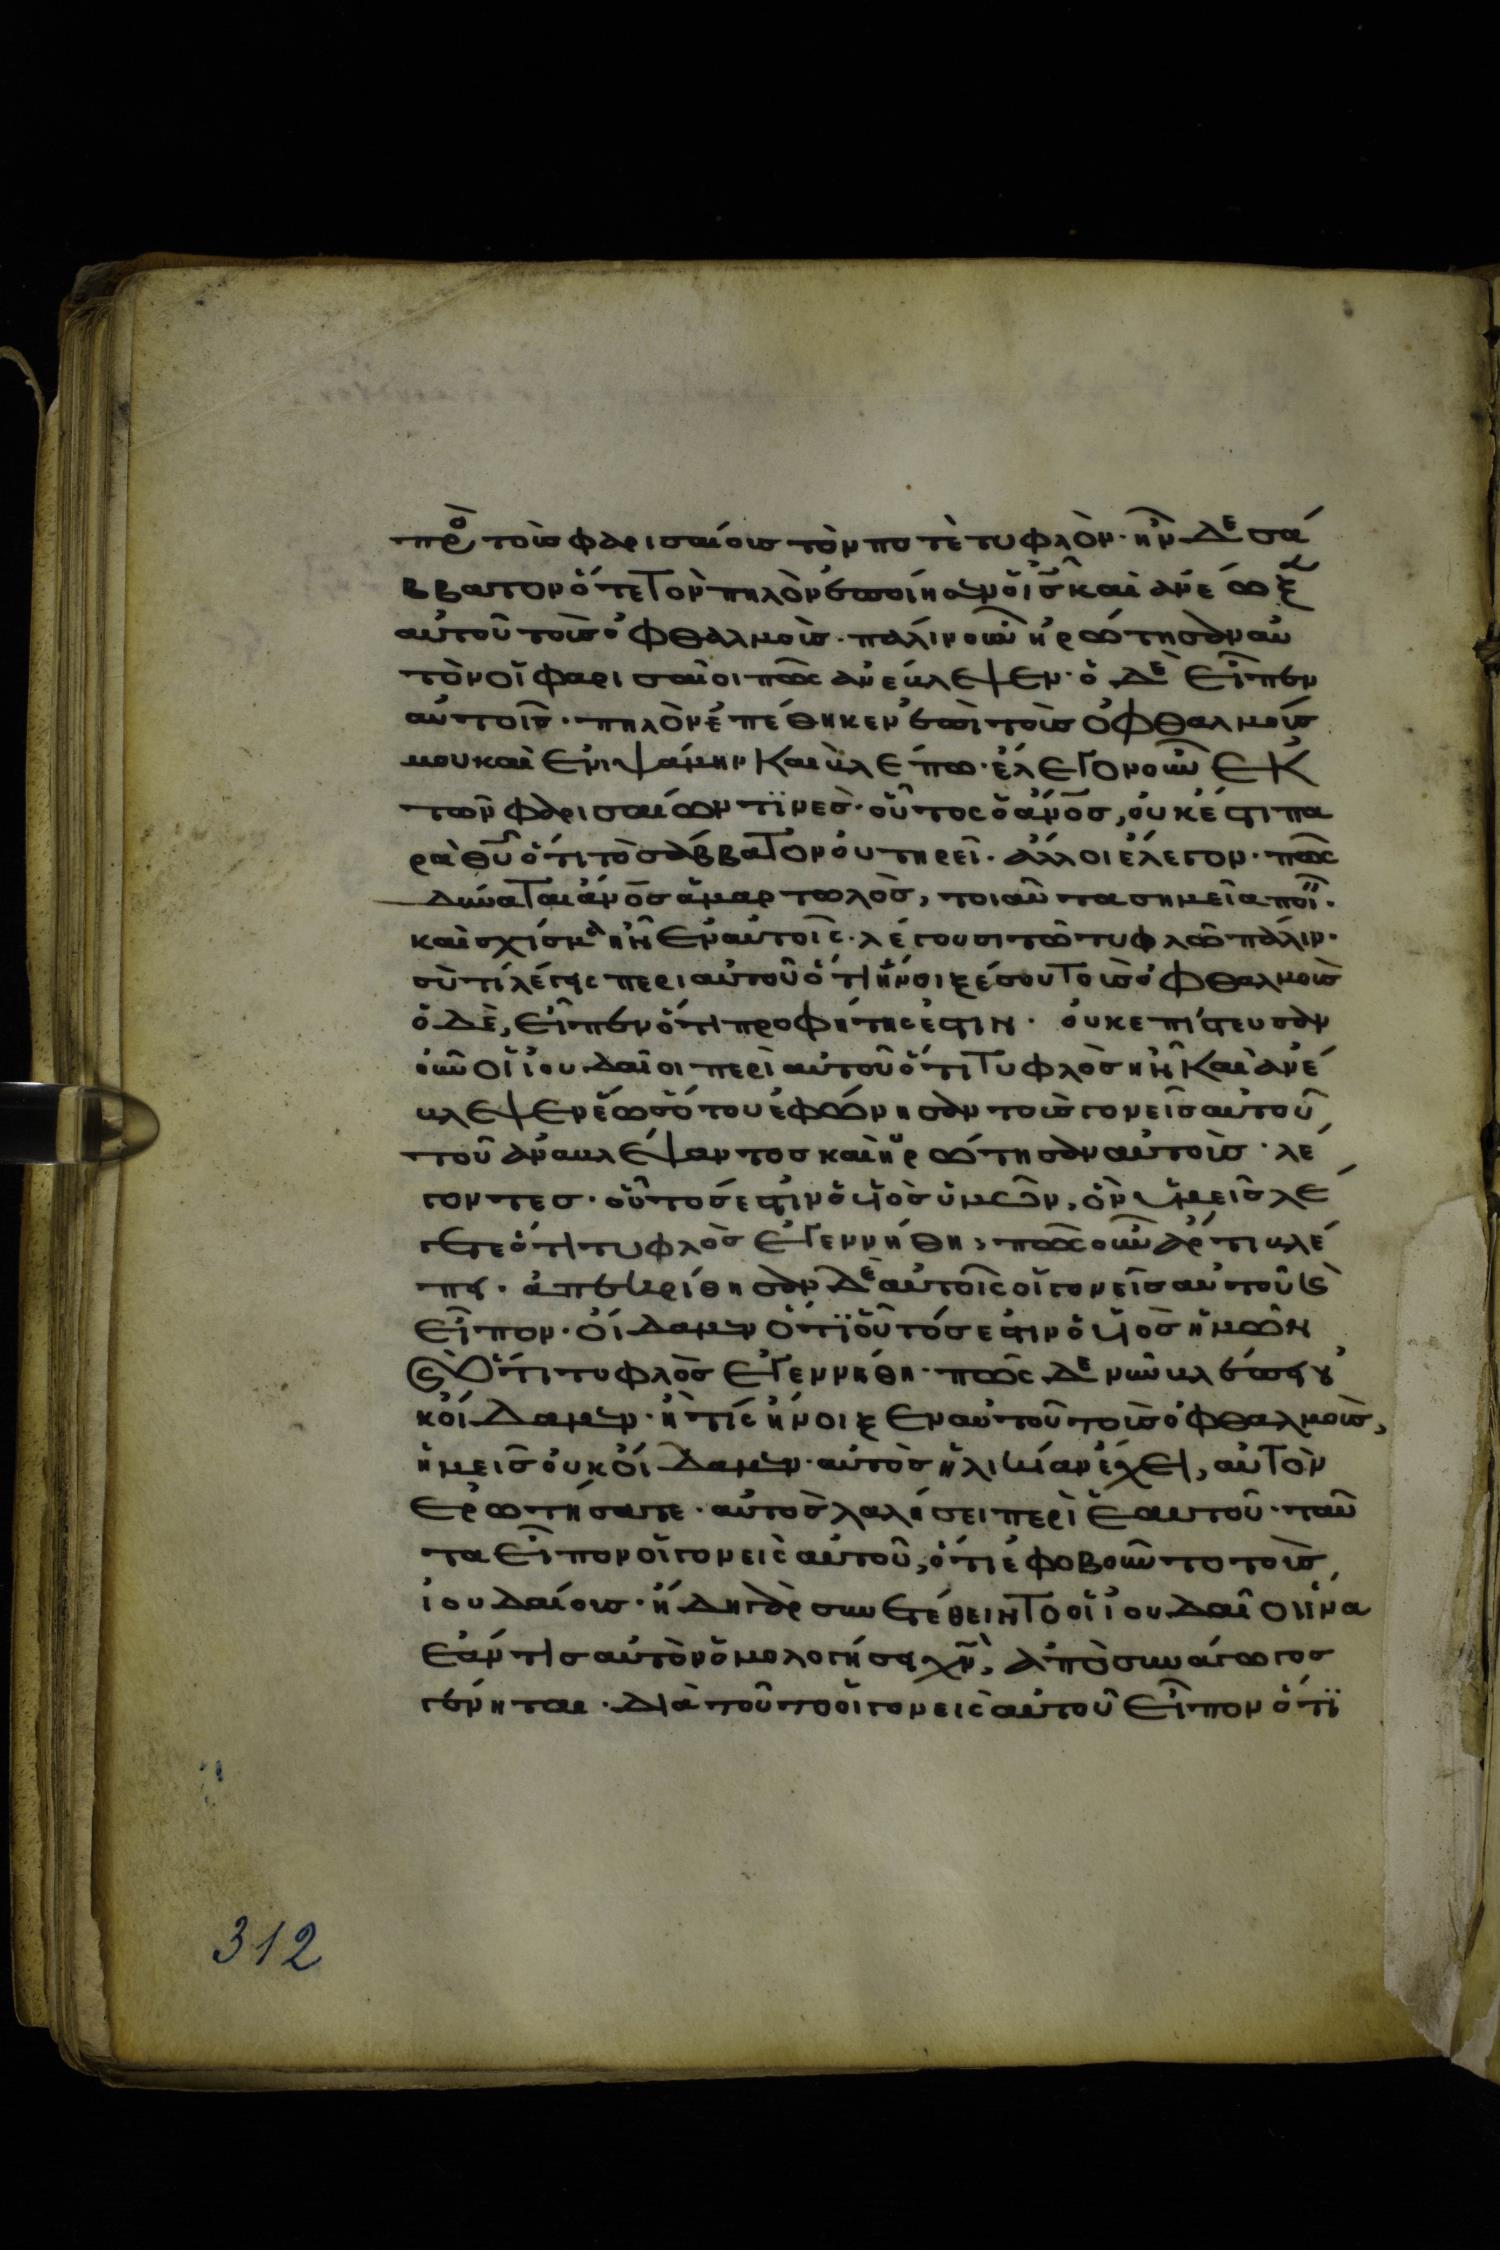 πρὸ τοὺσ φαρισαίουσ τὸν ποτὲ τυφλὸν· ἦν δὲ σά
ββατον ὅτε τὸν πηλὸν ἐποίησεν ὁ ἰ̅σ̅ καὶ ἀνέωξ
αὐτοῦ τοὺσ ὀφθαλμοὺσ· πάλιν οὖν ἠρώτησαν αὐ
τὸν οἱ φαρισαῖοι πῶς ἀνέβλεψεν· ὁ δὲ εἶπεν
αὐτοῖσ· πηλὸν ἐπέθηκεν ἐπὶ τοὺσ ὀφθαλμούσ
μου καὶ ἐνιψάμην καὶ βλέπω· ἔλεγον οὖν ἐκ
τῶν φαρισαίων τϊνεσ· οὗτος ὁ ἄν̅ο̅σ̅, οὐκ ἔστι πα
ρὰ θ̅υ̅ ὅτι τὸ σάββατον οὐ τηρεῖ· ἄλλοι ἔλεγον· πῶς
δύναται ἄν̅ο̅σ̅ ἁμαρτωλὸσ, τοιαῦτα σημεῖα ποϊ̃·
καὶ σχίσμα ἦν ἐν αὐτοῖς· λέγουσι τῶ τυφλῶ πάλιν·
σὺ τί λέγεις περι αὐτοῦ ὅτι ἤνοιξέ σου τοὺσ ὀφθαλμοὺσ
ὁ δὲ, εἶπεν ὅτι προφήτης ἐστιν· οὐκ επίστευσαν
οὖν οἱ ἰουδαῖοι περὶ αὐτοῦ ὅτι τυφλὸσ ἦν καὶ ἀνέ
βλεψεν ἕωσ ὅτου ἐφώνησαν τοὺσ γονεῖσ αὐτοῦ
τοῦ ἀναβλέψαντοσ καὶ ἠρώτησαν αὐτοὺσ· λέ
γοντεσ· οὗτόσ εστιν ὁ υἱὸσ ὑμῶν, ὃν ὑμεῖσ λέ
γετε ὅτι τυφλὸσ ἐγεννήθη, πῶς οὖν ἄρτι βλέ
πει· ἀπεκρίθησαν δὲ αὐτοῖς οἱ γονεῖσ αὐτοῦ ϗ
εἶπον· οἴδαμεν ὅτϊ οὗτόσ εστιν ὁ υἱὸσ ἡμῶν
ϗ ὅτι τυφλὸσ ἐγεννήθη· πῶς δε νῦν βλέπει οὐ
κ οἴδαμεν· ἢ τίς ἤνοιξεν αὐτοῦ τοὺσ ὀφθαλμοὺσ,
ἡμεῖσ οὐκ οἴδαμεν· αὐτὸσ ἡλικίαν ἔχει, αὐτὸν
ἐρωτήσατε· αὐτὸσ λαλήσει περὶ ἑαυτοῦ· ταῦ
τα εἶπον οἱ γονεις αὐτοῦ, ὅτι ἐφοβοῦντο τοὺσ
ἰουδαίουσ· ἤδη γὰρ συνετέθειντο οἱ ἰουδαῖοι ἵνα
ἐάν τισ αὐτὸν ὁμολογήσῃ χ̅ν̅, ἀποσυνάγωγοσ
γένηται· διὰ τοῦτο οἱ γονεις αὐτοῦ εἶπον ὅτϊ
312